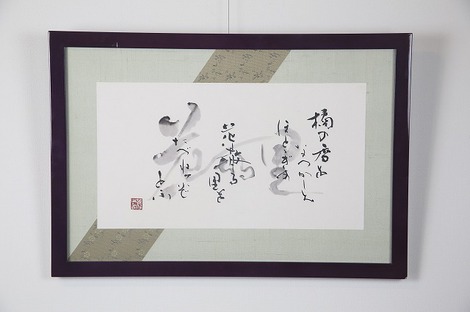 橘の香を
なつかしみ
ほととぎす
花散る
里を
たづねてぞ
とふ